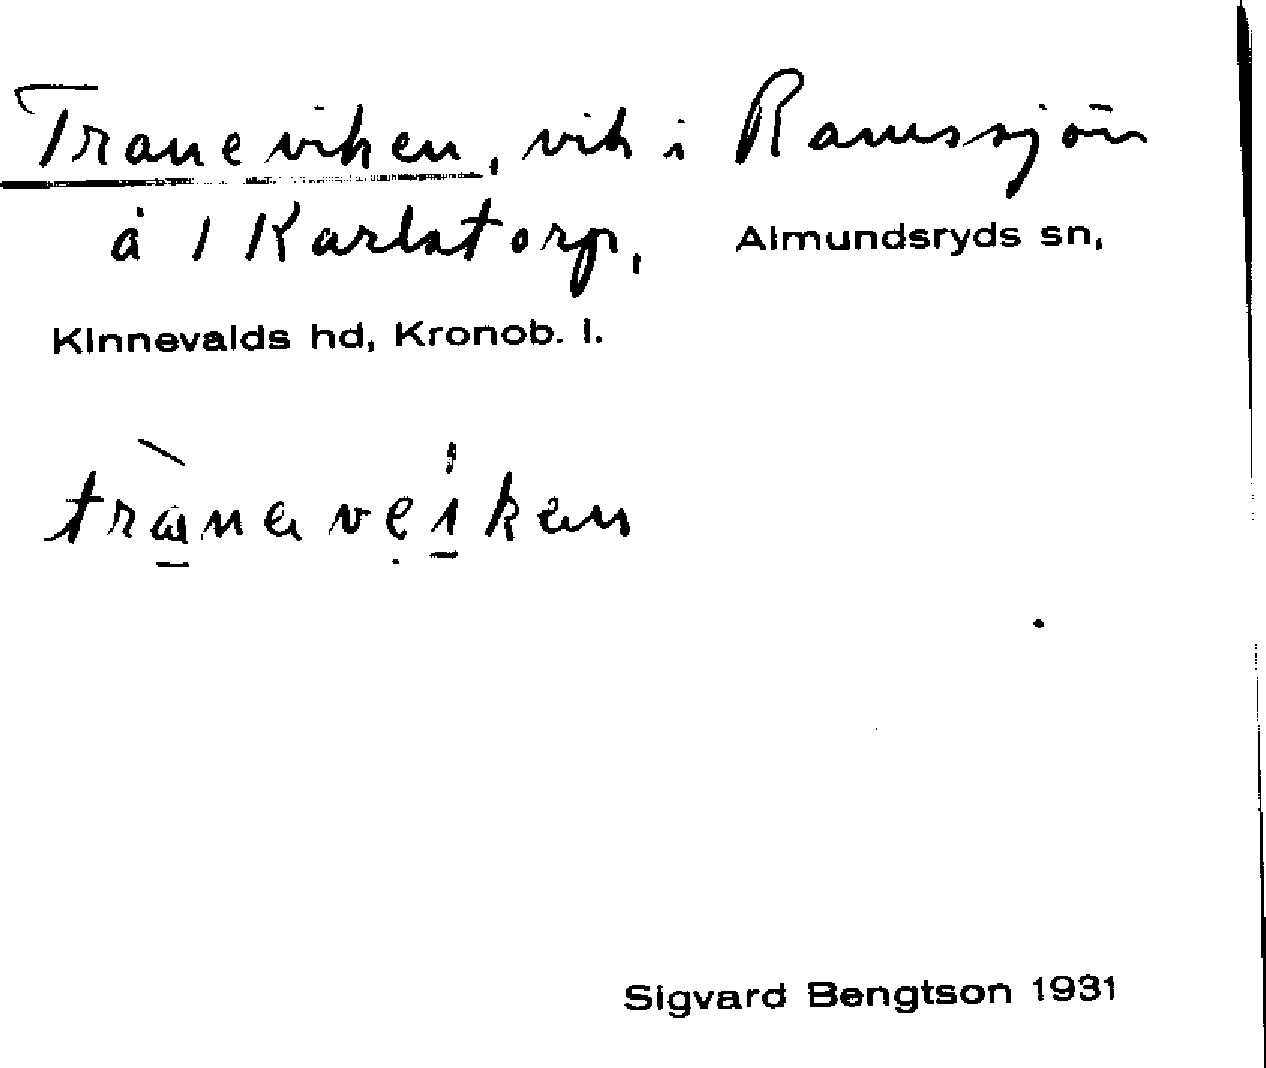 Traneviken, vik i Ramssjön
å 1 Karlstorp, Almundsryds sn,
Kinnevalds hd, Kronob. l.
Sigvard Bengtson 1931